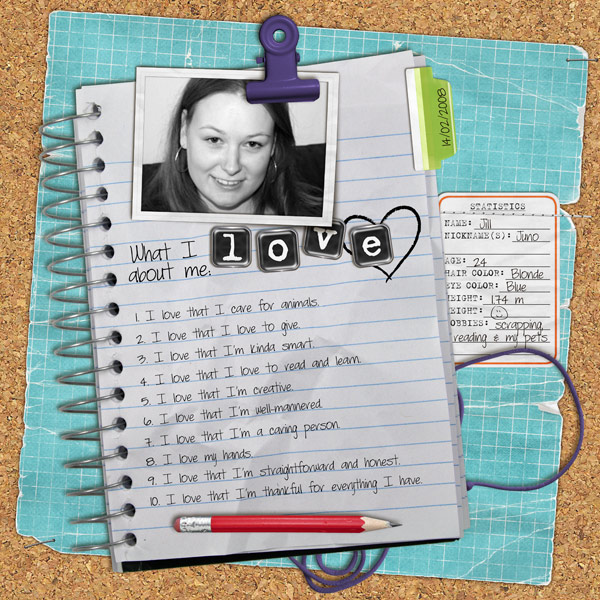 14/02/2008
What I love
about me:
1. I love that I care for animals.
2. I love that I love to give.
3. I love that I'm kinda smart.
4. I love that I love to read and learn.
5. I love that I'm creative.
6. I love that I'm well-mannered.
7. I love that I'm a caring person.
8. I love my hands.
9. I love that I'm straightforward and honest.
10. I love that I'm thankful for everything I have.
STATISTICS
NAME: Jill
NICKNAME(S): Juno
AGE: 24
HAIR COLOR: Blonde
EYE COLOR: Blue
HEIGHT: 1.74 m
EIGHT:
OBBIES: scrapping,
reading & my pets